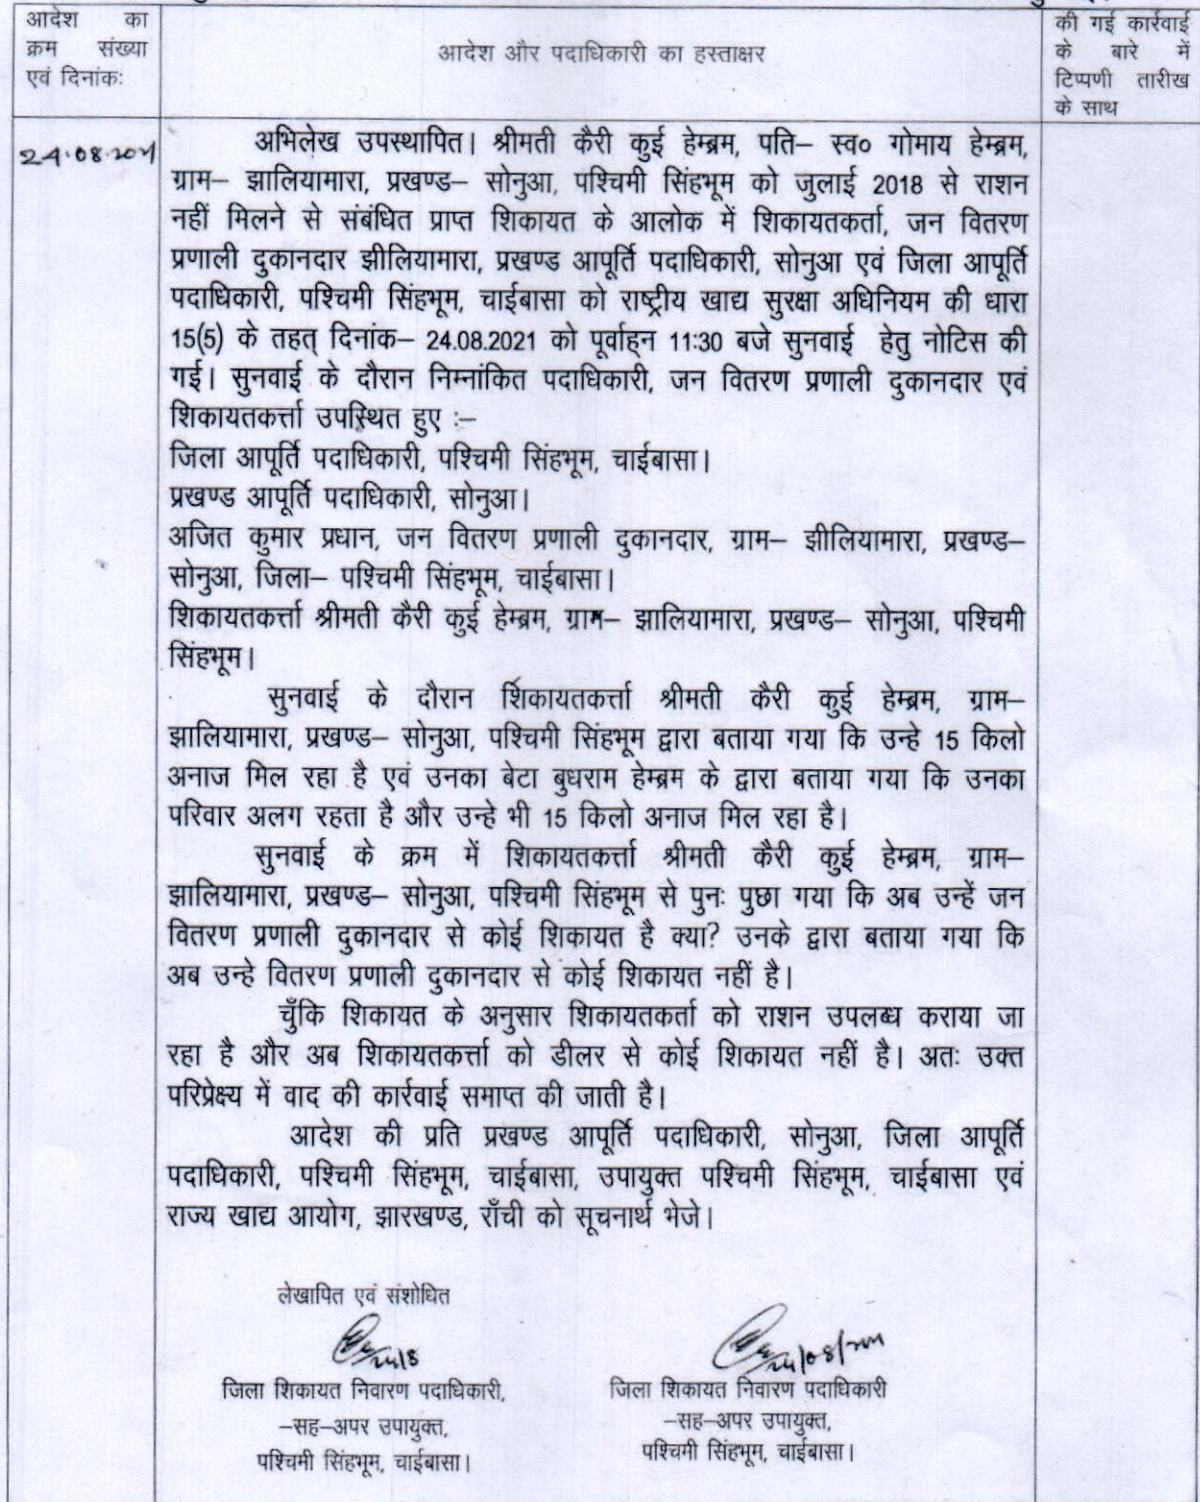 आदेश का
क्रम संख्या
एवं दिनांकः
आदेश और पदाधिकारी का हस्ताक्षर
की गई कार्रवाई
के बारे में
टिप्पणी तारीख
के साथ
24.08.2021
अभिलेख उपस्थापित। श्रीमती कैरी कुई हेम्ब्रम, पति– स्व० गोमाय हेम्ब्रम,
ग्राम– झालियामारा, प्रखण्ड– सोनुआ, पश्चिमी सिंहभूम को जुलाई 2018 से राशन
नहीं मिलने से संबंधित प्राप्त शिकायत के आलोक में शिकायतकर्ता, जन वितरण
प्रणाली दुकानदार झीलियामारा, प्रखण्ड आपूर्ति पदाधिकारी, सोनुआ एवं जिला आपूर्ति
पदाधिकारी, पश्चिमी सिंहभूम, चाईबासा को राष्ट्रीय खाद्य सुरक्षा अधिनियम की धारा
15(5) के तहत् दिनांक– 24.08.2021 को पूर्वाह्न 11:30 बजे सुनवाई हेतु नोटिस की
गई। सुनवाई के दौरान निम्नांकित पदाधिकारी, जन वितरण प्रणाली दुकानदार एवं
शिकायतकर्त्ता उपस्थित हुए :–
जिला आपूर्ति पदाधिकारी, पश्चिमी सिंहभूम, चाईबासा।
प्रखण्ड आपूर्ति पदाधिकारी, सोनुआ।
अजित कुमार प्रधान, जन वितरण प्रणाली दुकानदार, ग्राम– झीलियामारा, प्रखण्ड–
सोनुआ, जिला– पश्चिमी सिंहभूम, चाईबासा।
शिकायतकर्त्ता श्रीमती कैरी कुई हेम्ब्रम, ग्राम– झालियामारा, प्रखण्ड– सोनुआ, पश्चिमी
सिंहभूम।
सुनवाई के दौरान शिकायतकर्त्ता श्रीमती कैरी कुई हेम्ब्रम, ग्राम–
झालियामारा, प्रखण्ड– सोनुआ, पश्चिमी सिंहभूम द्वारा बताया गया कि उन्हे 15 किलो
अनाज मिल रहा है एवं उनका बेटा बुधराम हेम्ब्रम के द्वारा बताया गया कि उनका
परिवार अलग रहता है और उन्हे भी 15 किलो अनाज मिल रहा है।
सुनवाई के क्रम में शिकायतकर्त्ता श्रीमती कैरी कुई हेम्ब्रम, ग्राम–
झालियामारा, प्रखण्ड– सोनुआ, पश्चिमी सिंहभूम से पुनः पुछा गया कि अब उन्हें जन
वितरण प्रणाली दुकानदार से कोई शिकायत है क्या? उनके द्वारा बताया गया कि
अब उन्हे वितरण प्रणाली दुकानदार से कोई शिकायत नहीं है।
चुँकि शिकायत के अनुसार शिकायतकर्ता को राशन उपलब्ध कराया जा
रहा है और अब शिकायतकर्त्ता को डीलर से कोई शिकायत नहीं है। अतः उक्त
परिप्रेक्ष्य में वाद की कार्रवाई समाप्त की जाती है।
आदेश की प्रति प्रखण्ड आपूर्ति पदाधिकारी, सोनुआ, जिला आपूर्ति
पदाधिकारी, पश्चिमी सिंहभूम, चाईबासा, उपायुक्त पश्चिमी सिंहभूम, चाईबासा एवं
राज्य खाद्य आयोग, झारखण्ड, राँची को सूचनार्थ भेजे।
लेखापित एवं संशोधित
24/8
24/08/2021
जिला शिकायत निवारण पदाधिकारी,
–सह–अपर उपायुक्त,
पश्चिमी सिंहभूम, चाईबासा।
जिला शिकायत निवारण पदाधिकारी
–सह–अपर उपायुक्त,
पश्चिमी सिंहभूम, चाईबासा।